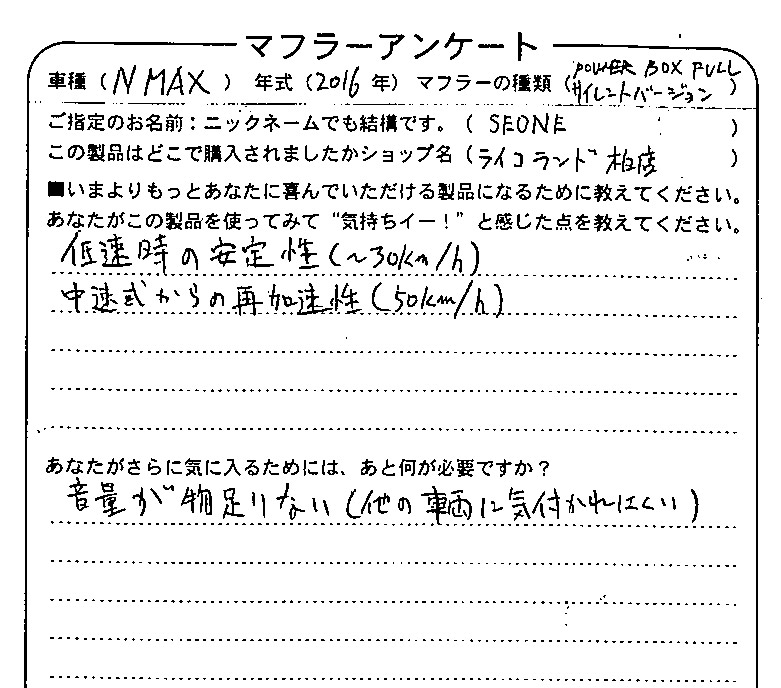 マフラーアンケート
車種（NMAX）年式（2016年）マフラーの種類（POWER BOX FULL サイレントバージョン）
ご指定のお名前：ニックネームでも結構です。（SEONE）
この製品はどこで購入されましたかショップ名（ライコランド 柏店）
■いまよりもっとあなたに喜んでいただける製品になるために教えてください。
あなたがこの製品を使ってみて“気持ちイー！”と感じた点を教えてください。
低速時の安定性（～30km/h）
中速式からの再加速性（50km/h）
あなたがさらに気に入るためには、あと何が必要ですか？
音量が物足りない（他の車両に気付かれにくい）